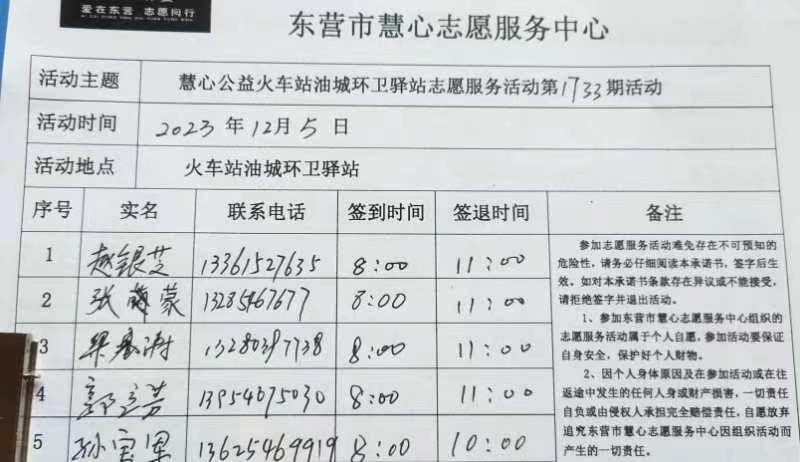 爱在东营 志愿同行
东营市慧心志愿服务中心
活动主题 慧心公益火车站油城环卫驿站志愿服务活动第1733期活动
活动时间 2023年12月5日
活动地点 火车站油城环卫驿站
序号 实名 联系电话 签到时间 签退时间 备注
1 赵银芝 13361527635 8:00 11:00
2 张 蒙 13285467677 8:00 11:00
3 梁 13280397738 8:00 11:00
4 郭立芳 13954675030 8:00 11:00
5 孙宝 13625469919 8:00 10:00
参加志愿服务活动难免存在不可预知的
危险性，请务必仔细阅读本承诺书，签字后生
效。如对本承诺书条款存在异议或不能接受，
请拒绝签字并退出活动。
1、参加东营市慧心志愿服务中心组织的
志愿服务活动属于个人自愿，参加活动要保证
自身安全，保护好个人财物。
2、因个人身体原因及在参加活动或在往
返途中发生的任何人身或财产损害，一切责任
自负或由侵权人承担完全赔偿责任，自愿放弃
追究东营市慧心志愿服务中心因组织活动而
产生的一切责任。